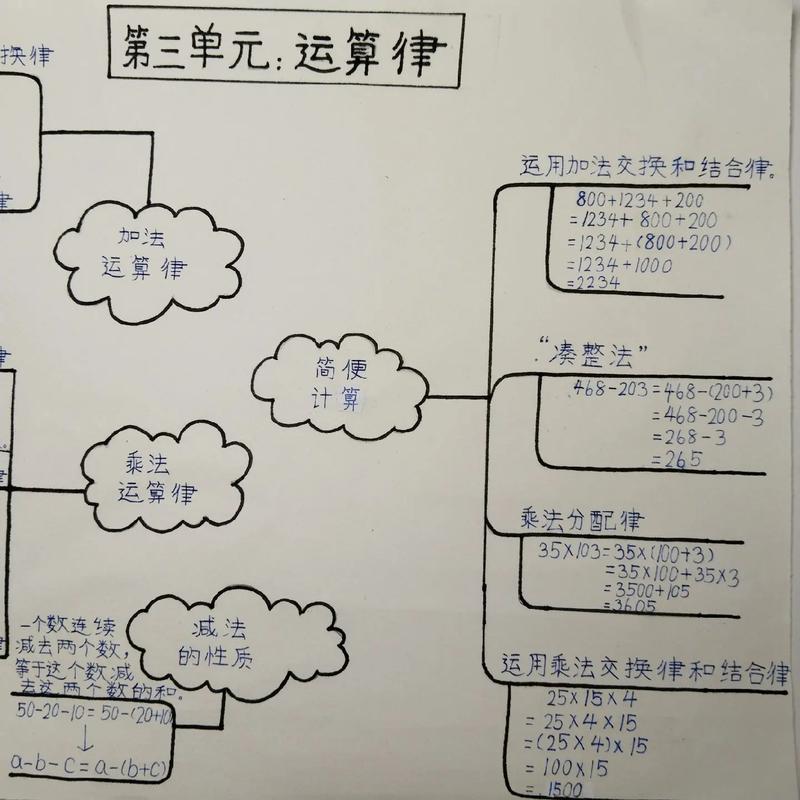 第三单元:运算律
换律
律
加法
运算律
律
律
乘法
运算律
减法
的性质
一个数连续
减去两个数,
等于这个数减
去这两个数的和。
50-20-10=50-(20+10
↓
a-b-c=a-(b+c)
简便
计算
运用加法交换和结合律。
800+1234+200
=1234+800+200
=1234+(800+200)
=1234+1000
=2234
“凑整法”
468-203=468-(200+3)
=468-200-3
=268-3
=265
乘法分配律
35×103=35×(100+3)
=35×100+35×3
=3500+105
=3605
运用乘法交换律和结合律
25×15×4
=25×4×15
=(25×4)×15
=100×15
=1500